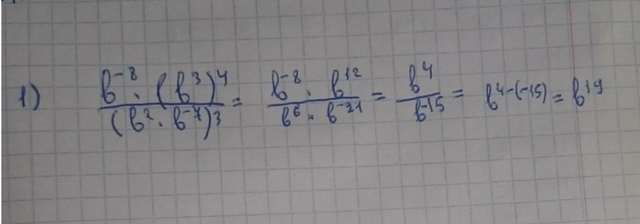 1) \frac{b^{-8} \cdot (b^3)^4}{(b^2 \cdot b^{-7})^3} = \frac{b^{-8} \cdot b^{12}}{b^6 \cdot b^{-21}} = \frac{b^4}{b^{-15}} = b^{4-(-15)} = b^{19}